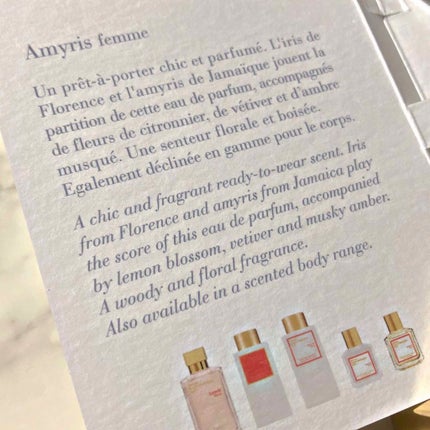 Amyris femme
Un prêt-à-porter chic et parfumé. L'iris de
Florence et l'amyris de Jamaïque jouent la
partition de cette eau de parfum, accompagnés
de fleurs de citronnier, de vétiver et d'ambre
musqué. Une senteur florale et boisée.
Egalement déclinée en gamme pour le corps.
A chic and fragrant ready-to-wear scent. Iris
from Florence and amyris from Jamaica play
the score of this eau de parfum, accompanied
by lemon blossom, vetiver and musky amber.
A woody and floral fragrance.
Also available in a scented body range.